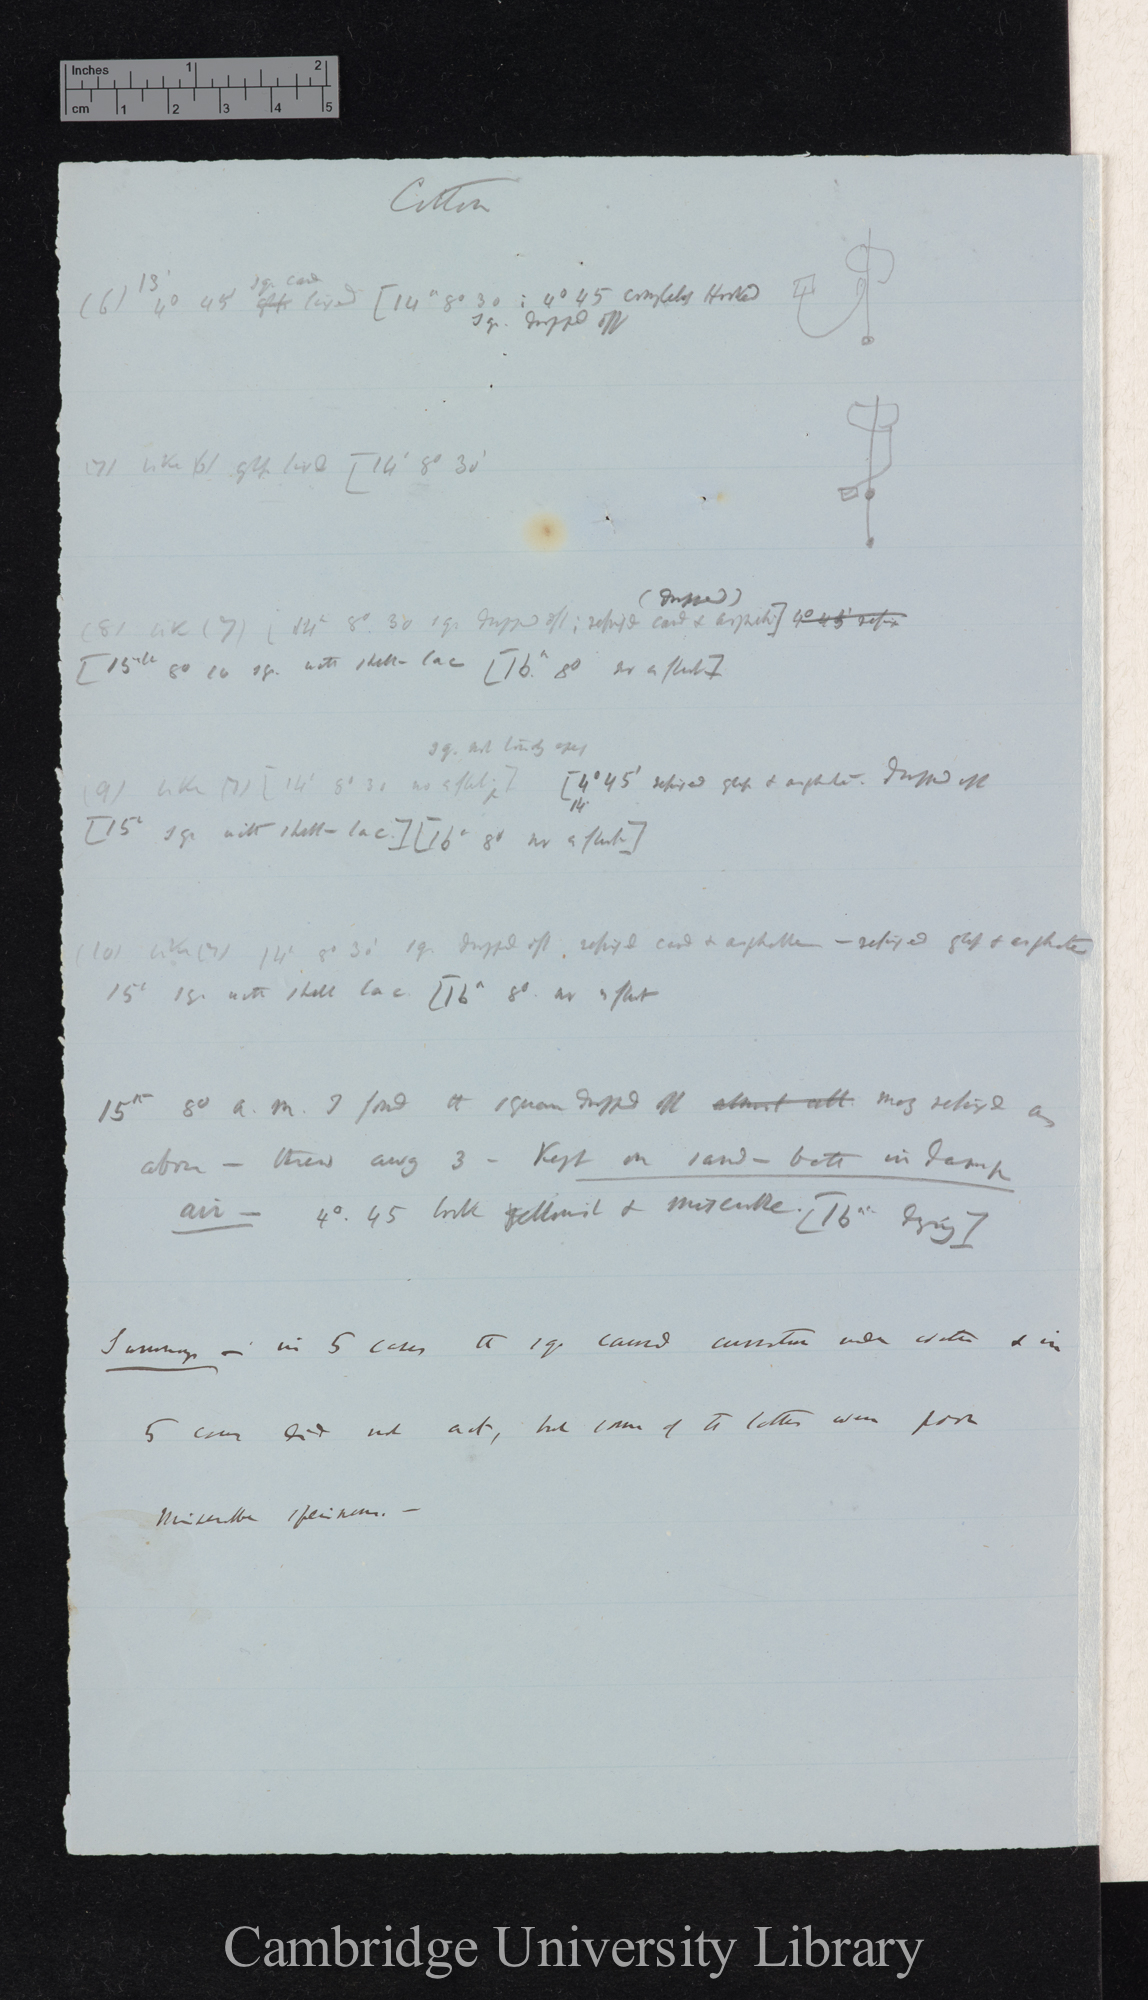 Inches 1 2
cm 1 2 3 4 5
Cotton
13'
sq. card
(6) 4° 45' glass fixed [14th 8° 30 ; 4° 45 completely Hooked
sq. dropped off
(7) like (6) glass fixed [14' 8° 30'
(dropped)
(8) like (7) [14th 8° 30 sq. dropped off; refixed card & asphalte] 4° 45' refix
[15th 8° sq. with shell-lac [16th 8° no effect]
sq. not
(9) like (7) [14' 8° 30 no effect] [4° 45' refixed glass & asphalte. Dropped off
14'
[15th sq. with shell-lac.] [16th 8° no effect]
(10) like (7) 14' 8° 30' sq. dropped off. refixed card & asphalte — refixed glass & asphalte
15th sq. with shell lac. [16th 8° no effect
15th 8° a.m. I found the squares dropped off almost all. many refixed as
above — threw away 3 — Kept on sand-bath in damp
air — 4° 45 look yellowish & miserable. [16th dying]
Summary — in 5 cases the sqs caused curvature & in
5 cases did not act, but some of the latter were poor
miserable specimens. —
Cambridge University Library